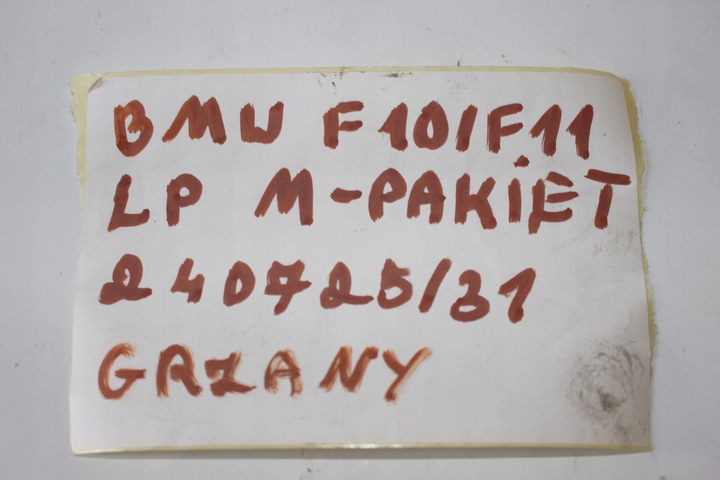 BMW F10/F11
LP M-PAKiET
240725/31
GRZANY